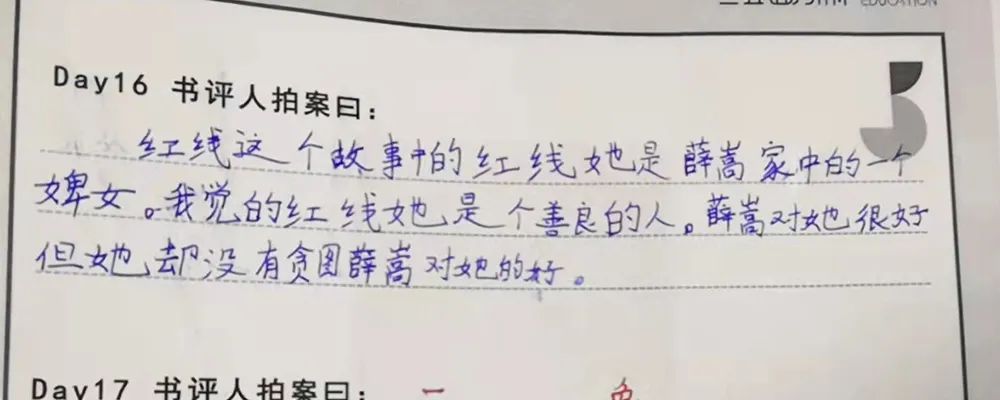 EDUCATION
Day16 书评人拍案曰：
红线这个故事中的红线她是薛嵩家中的一个
婢女。我觉的红线她是个善良的人。薛嵩对她很好
但她却没有贪图薛嵩对她的好。
Day17 书评人拍案曰：